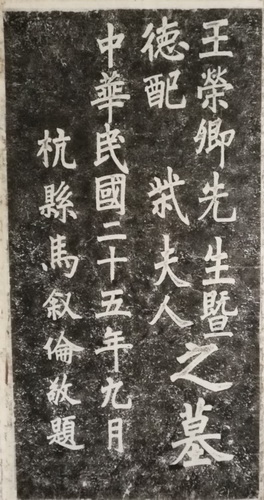 王榮卿先生暨
徳配 夫人
之墓
中華民國二十五年九月
杭縣馬叙倫敬題